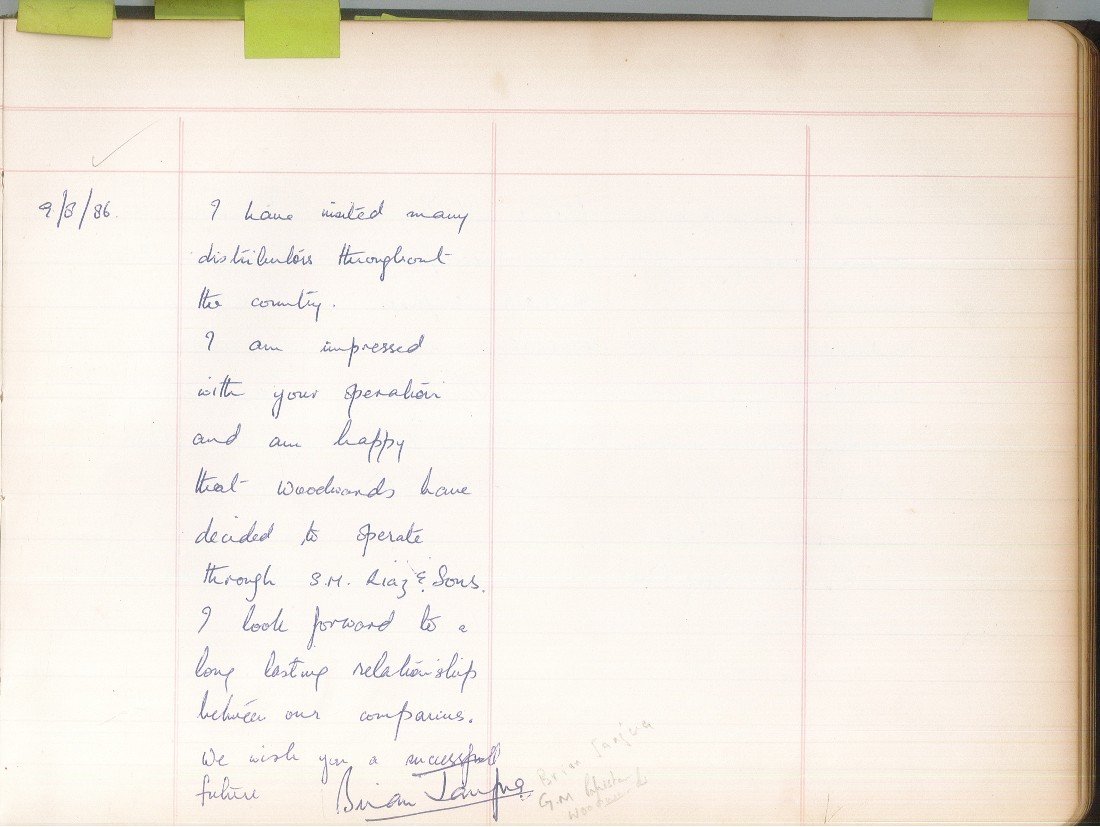 9/8/86.
I have visited many
distributors throughout
the country.
I am impressed
with your operation
and am happy
that Woodwards have
decided to operate
through S.M. Riaz & Sons.
I look forward to a
long lasting relationship
between our companies.
We wish you a successful
future
Brian Janjua
Brian Janjua
G.M Pakistan